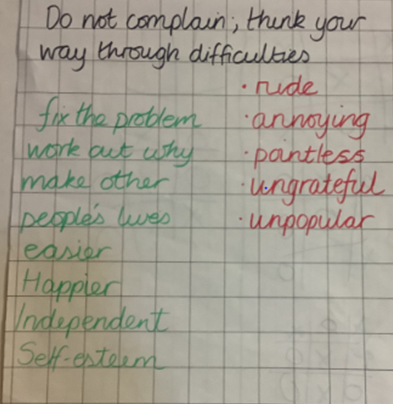 Do not complain; think your
way through difficulties
· rude
· annoying
· pointless
· ungrateful
· unpopular
fix the problem
work out why
make other
people's lives
easier
Happier
Independent
Self-esteem